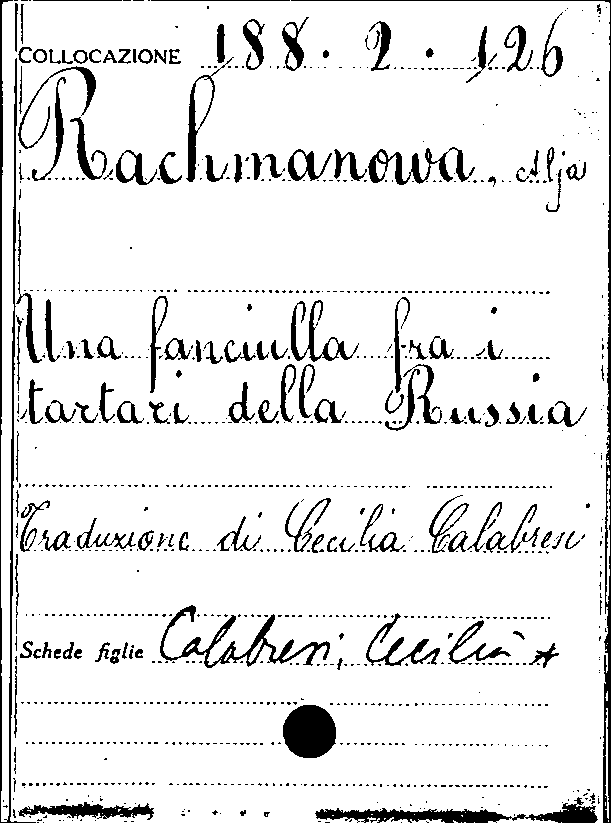 COLLOCAZIONE 188.2.126
Rachmanowa, Alja
Una fanciulla fra i
tartari della Russia
Traduzione di Cecilia Calabresi
Schede figlie Calabresi, Cecilia *